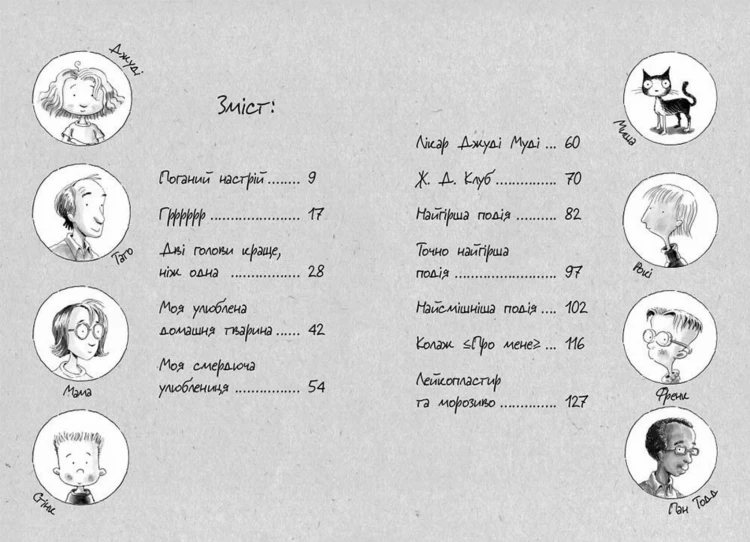 Джуді
Тато
Мама
Стінк
Зміст:
Поганий настрій........ 9
Гррррр ..................... 17
Дві голови краще,
ніж одна ................ 28
Моя улюблена
домашня тварина...... 42
Моя смердюча
улюблениця ............... 54
Лікар Джуді Муді ... 60
Ж. Д. Клуб.............. 70
Найгірша подія ......... 82
Точно найгірша
подія ....................... 97
Найсмішніша подія .... 102
Колаж «Про мене» ... 116
Лейкопластир
та морозиво .............. 127
Миша
Рокі
Френк
Пан Тодд